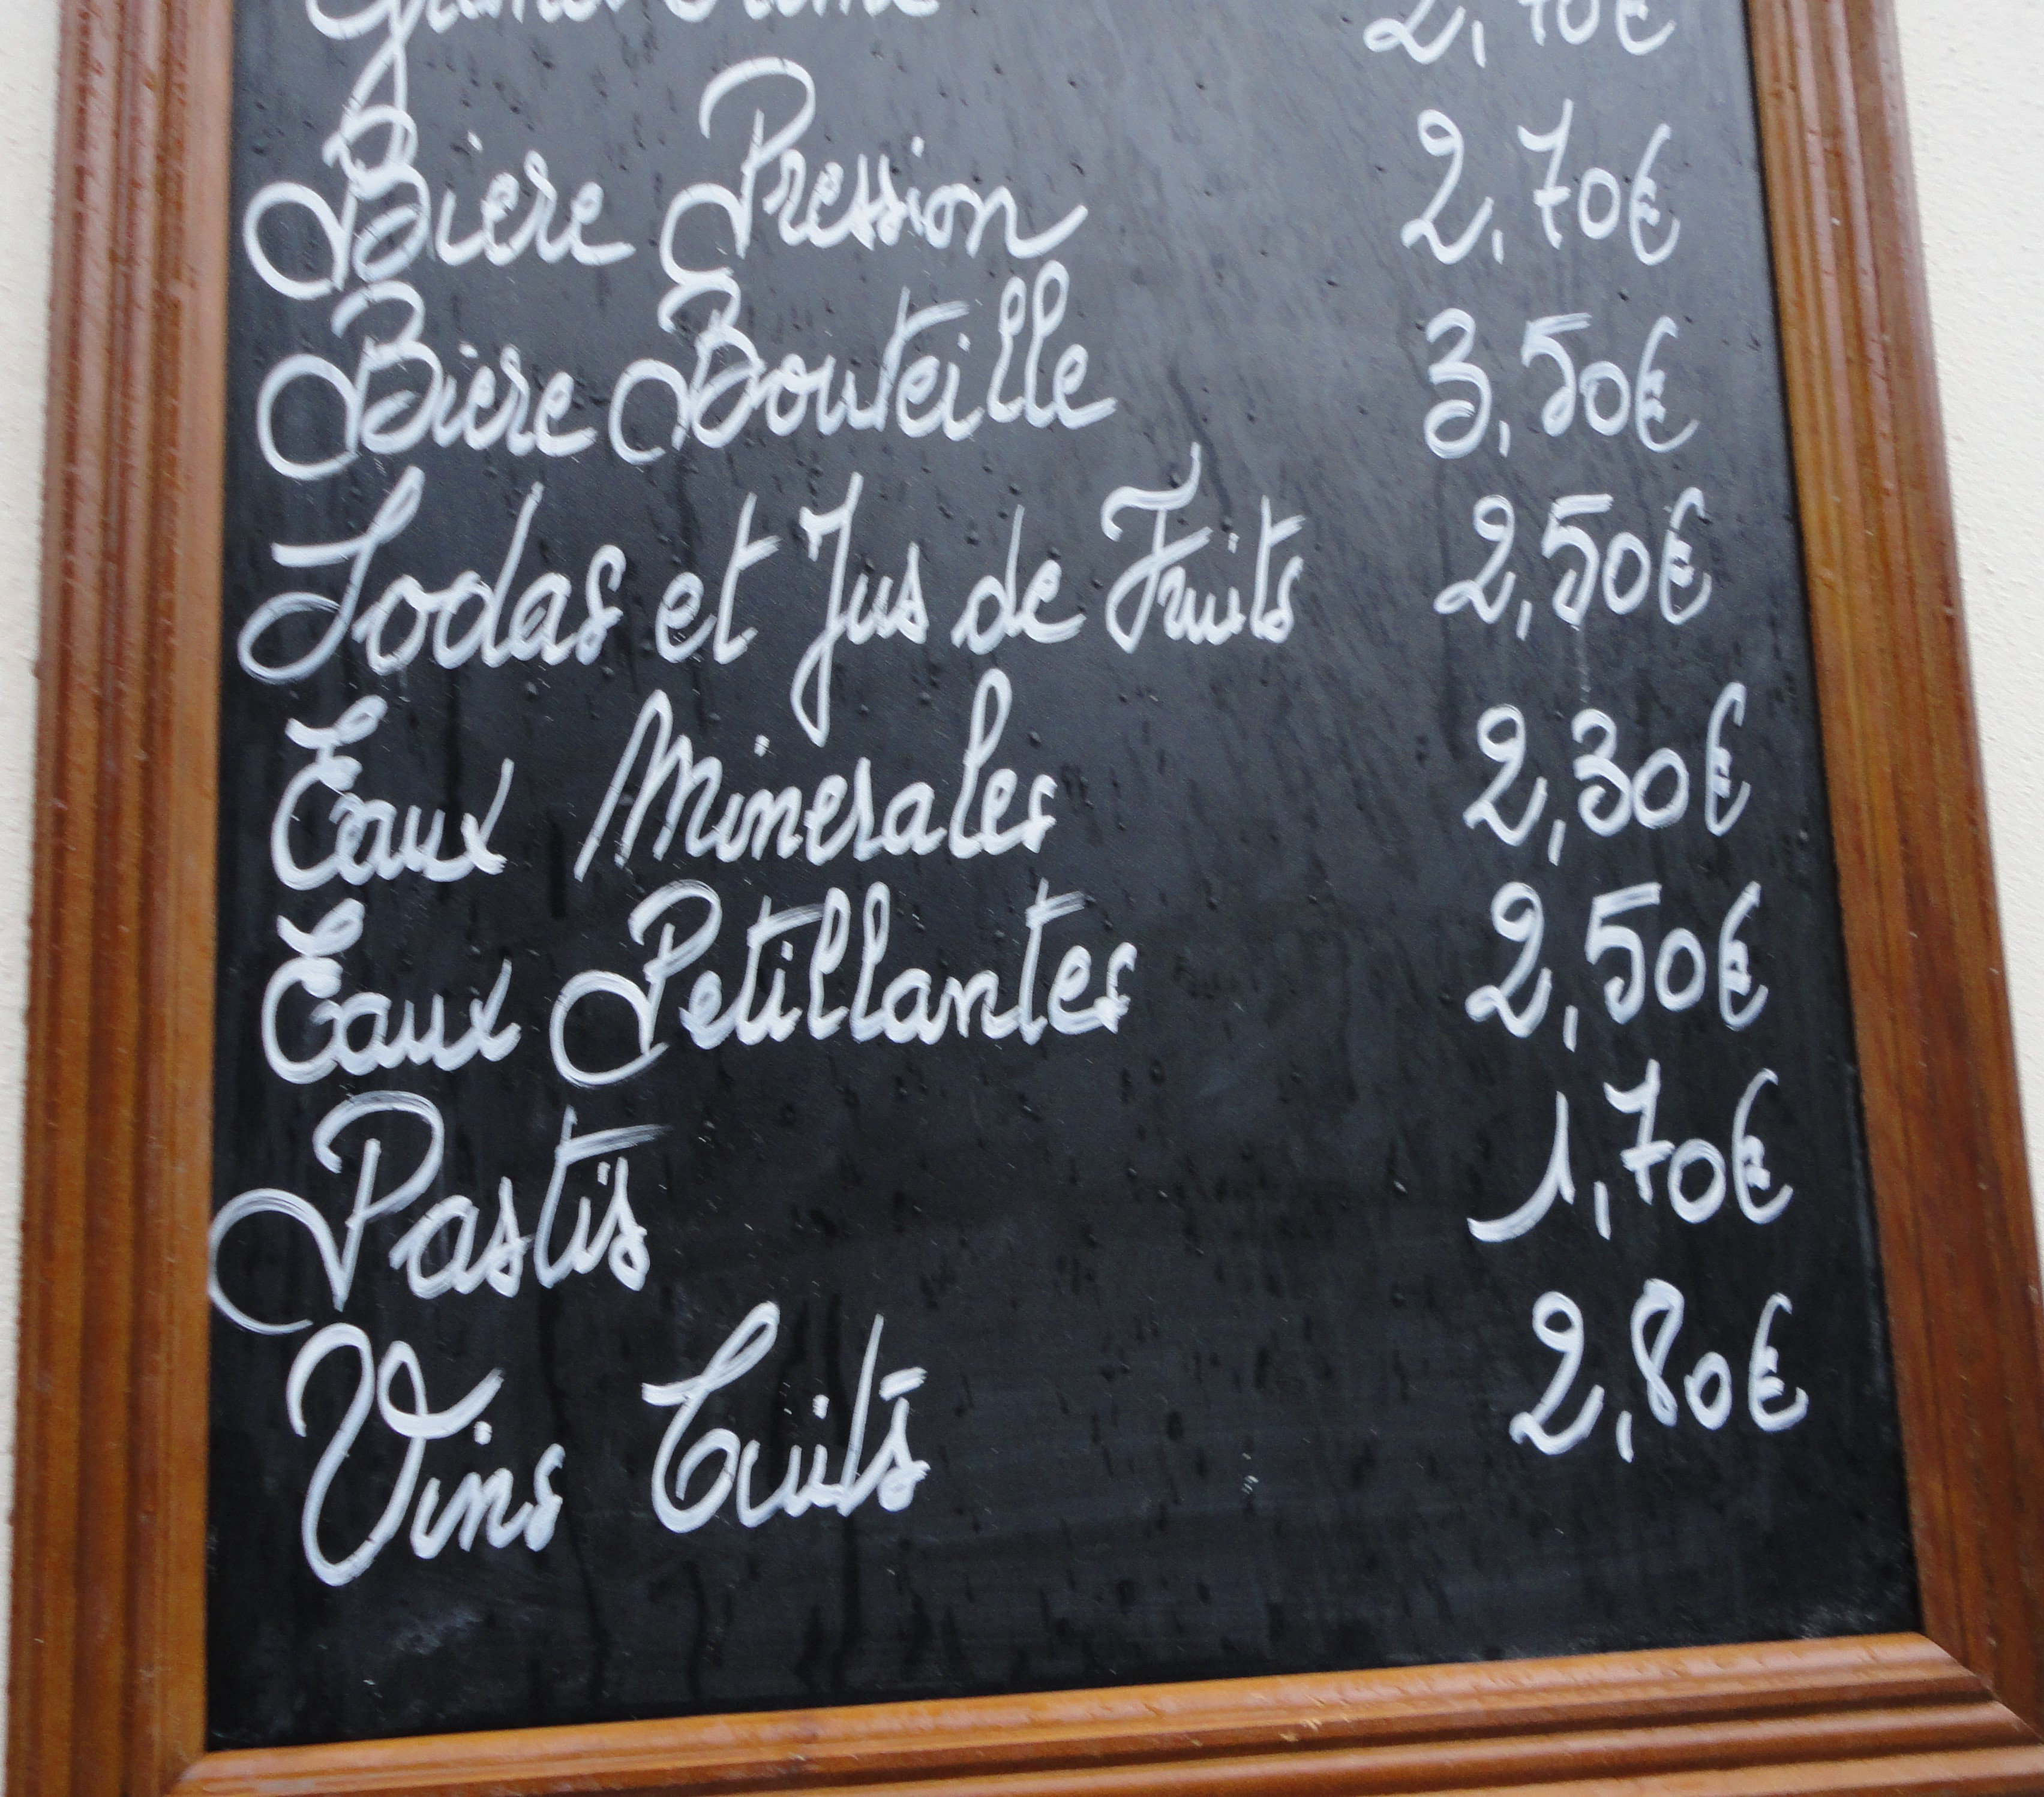 Grand Crème 2,70€
Bière Pression 2,70€
Bière Bouteille 3,50€
Sodas et Jus de Fruits 2,50€
Eaux Minerales 2,30€
Eaux Petillantes 2,50€
Pastis 1,70€
Vins Cuits 2,80€